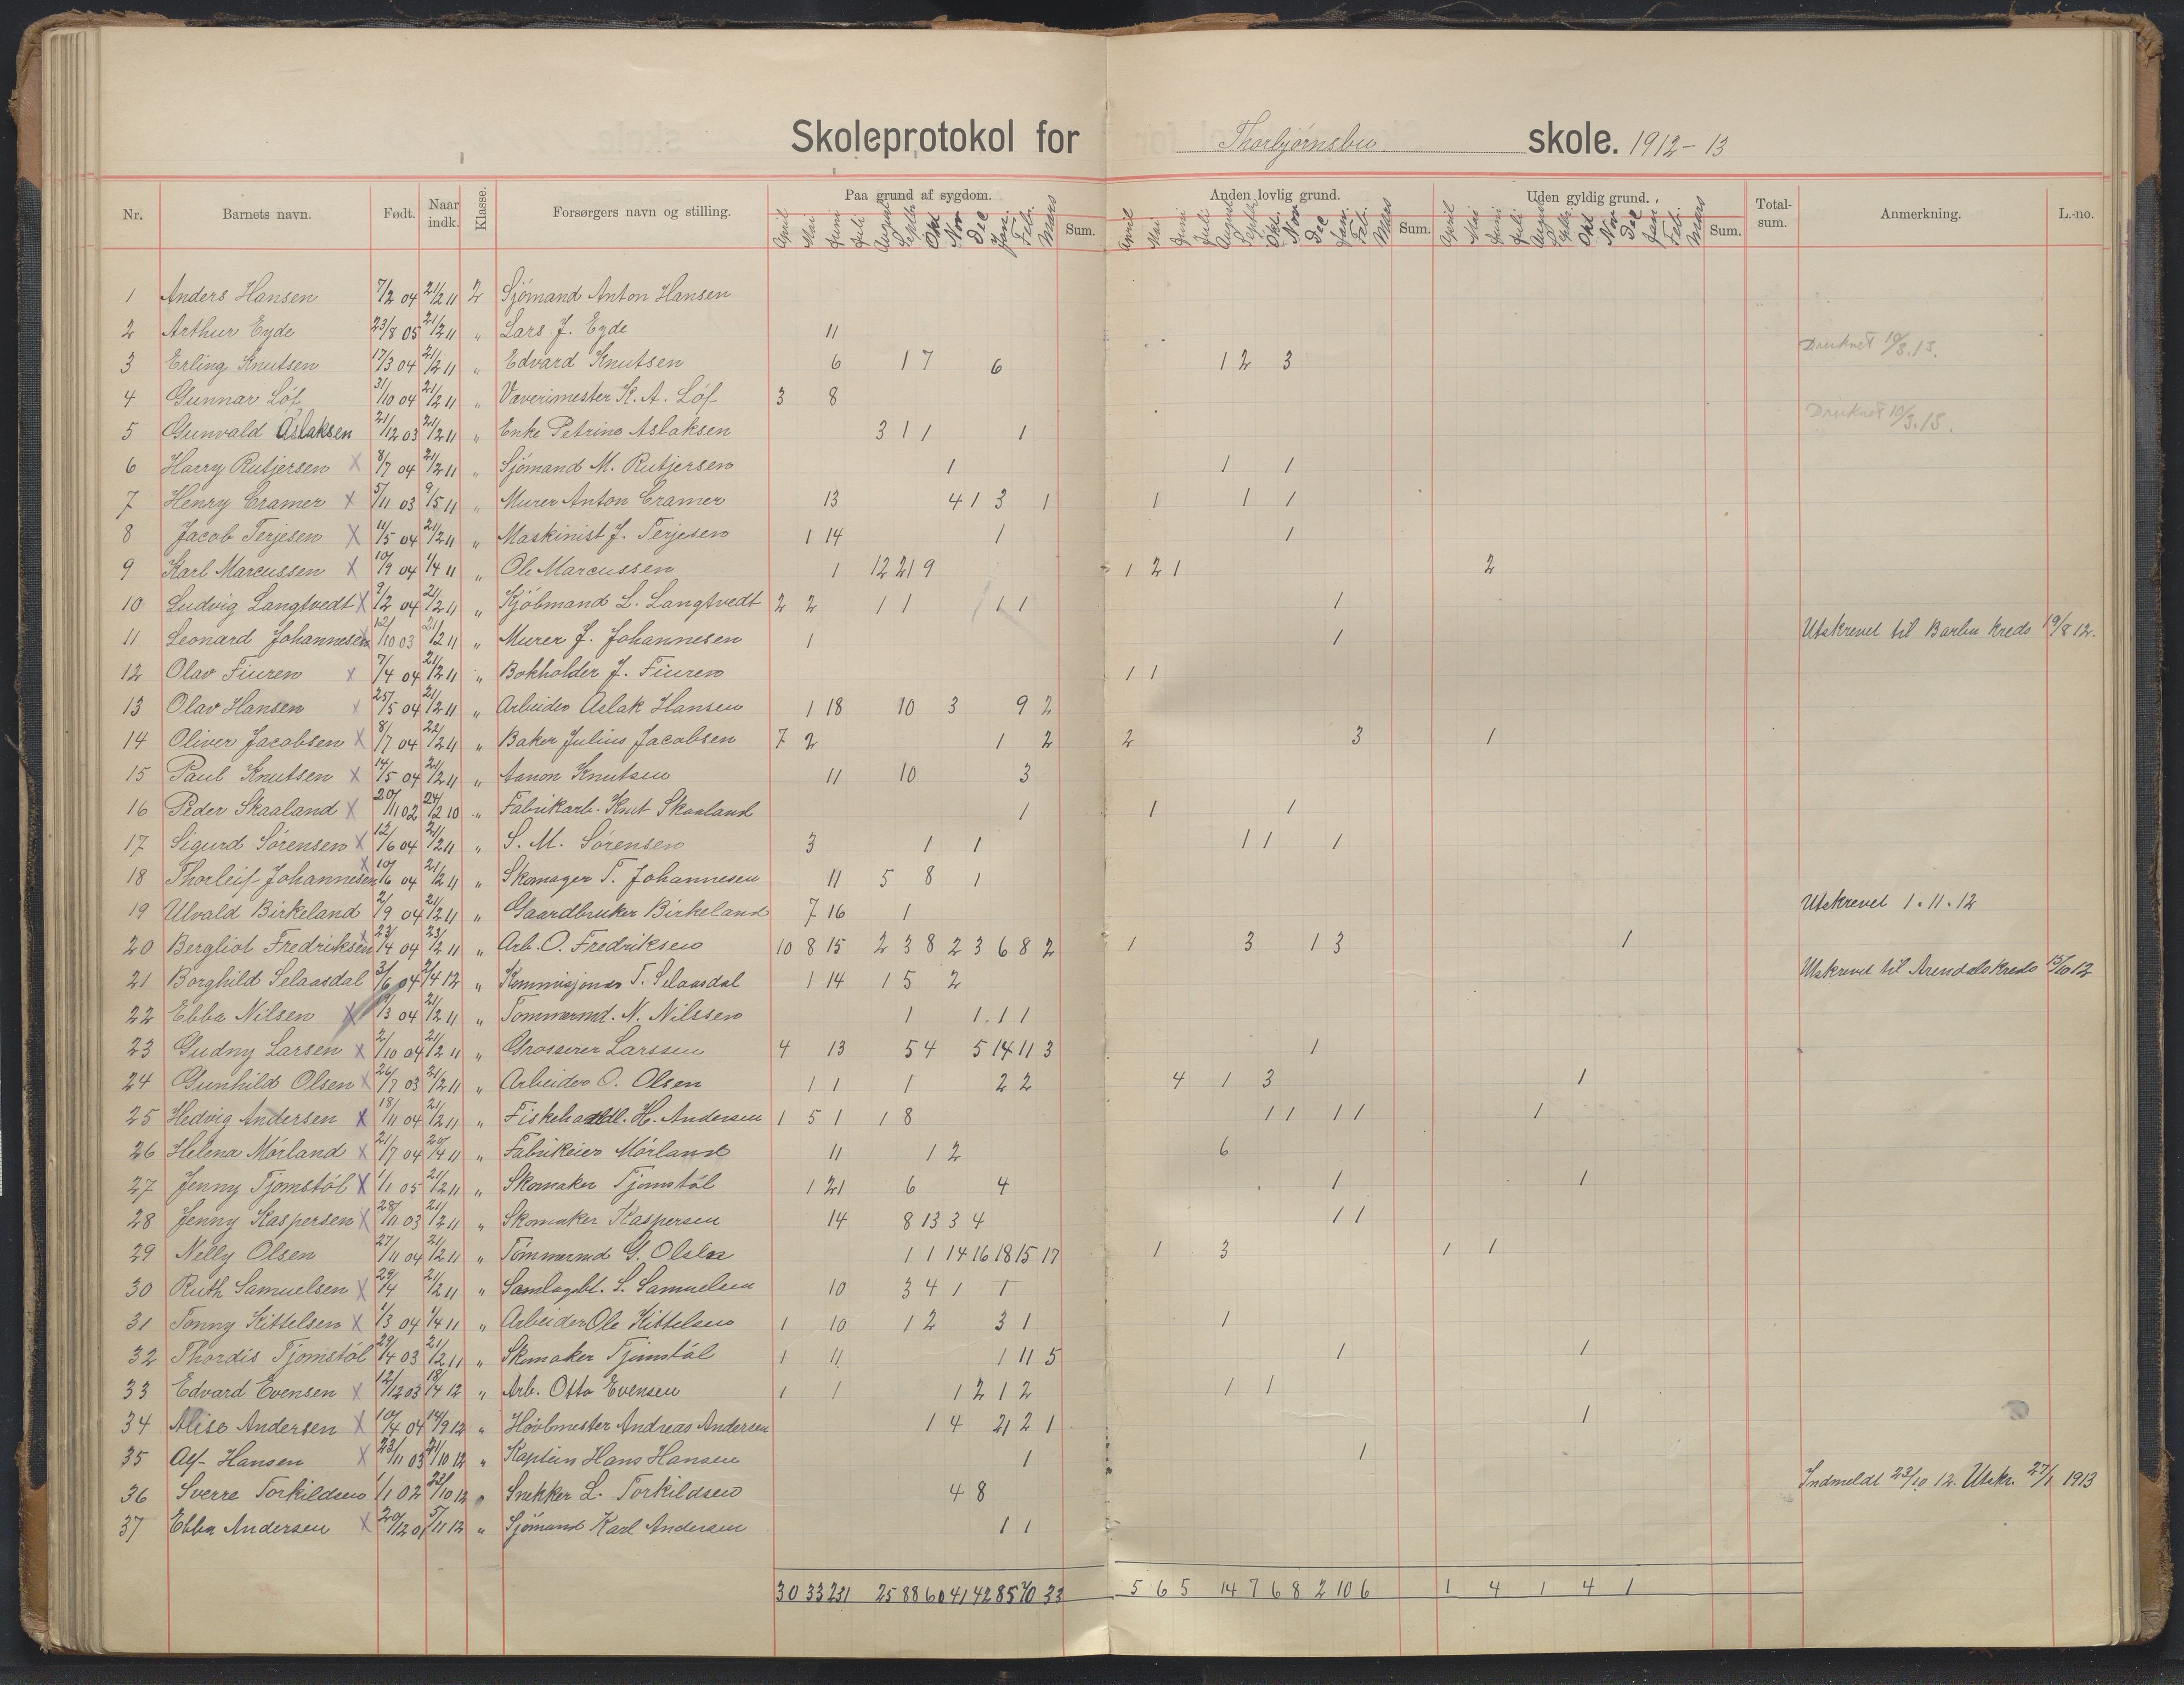 Skoleprotokol for Thorbjørnsbu skole. 1912-13
Nr. Barnets navn. Født. Naar indk. Klasse. Forsørgers navn og stilling. Paa grund af sygdom. Sum. Anden lovlig grund. Sum. Uden gyldig grund. Sum. Total-sum. Anmerkning. L.-no.
April Mai Juni Juli August Septbr. Okt. Nov Dec Jan. Feb. Mars April Mai Juni Juli August Septbr. Okt. Nov Dec Jan. Feb. Mars April Mai Juni Juli August Septbr. Okt Nov Dec Jan Feb. Mars
1 Anders Hansen 7/2 04 21/2 11 2 Sjömand Anton Hansen
2 Arthur Eyde 23/8 05 21/2 11 " Lars J. Eyde 11 Druknet 10/3.13.
3 Erling Knutsen 17/3 04 21/2 11 " Edvard Knutsen 6 1 7 6 1 2 3
4 Gunnar Löf 31/10 04 21/2 11 " Væverimester K. A. Löf 3 8
5 Gunvald Aslaksen 21/12 03 21/2 11 " Enke Petrine Aslaksen 3 1 1 1 Druknet 10/3.13.
6 Harry Rutjersen x 8/7 04 21/2 11 " Sjömand M. Rutjersen 1 1 1
7 Henry Cramer x 5/11 03 9/5 11 " Murer Anton Cramer 13 4 1 3 1 1 1 1
8 Jacob Terjesen x 11/5 04 21/2 11 " Maskinist J. Terjesen 1 14 1 1
9 Karl Marcussen x 10/9 04 1/4 11 " Ole Marcussen 1 12 21 9 1 2 1 2
10 Ludvig Langtvedt x 9/2 04 21/2 11 " Kjöbmand L. Langtvedt 2 2 1 1 1 1 1
11 Leonard Johannesen 12/10 03 21/2 11 " Murer J. Johannesen 1 1 Utskrevet til Barbu kreds 19/8 12.
12 Olav Fiuren x 7/4 04 21/2 11 " Bokholder J. Fiuren 1 1
13 Olav Hansen x 25/5 04 21/2 11 " Arbeider Aslak Hansen 1 18 10 3 9 2
14 Oliver Jacobsen x 8/7 04 22/2 11 " Baker Julius Jacobsen 7 2 1 2 2 3 1
15 Paul Knutsen x 14/5 04 21/2 11 " Aanon Knutsen 11 10 3
16 Peder Skaaland x 20/11 02 24/2 10 " Fabrikarb. Knut Skaaland 1 1 1
17 Sigurd Sörensen x 12/6 04 21/2 11 " S. M. Sörensen 3 1 1 1 1 1
18 Thorleif Johannesen x 10/6 04 21/2 11 " Skomager T. Johannesen 11 5 8 1
19 Ulvald Birkeland 2/9 04 21/2 11 " Gaardbruker Birkeland 7 16 1 Utskrevet 1.11.12
20 Bergliot Fredriksen x 23/4 04 23/2 11 " Arb. O. Fredriksen 10 8 15 2 3 8 2 3 6 8 2 1 3 1 3 1
21 Borghild Selaasdal 3/6 04 2/4 12 " Kommisjonær T. Selaasdal 1 14 1 5 2 Utskrevet til Arendals kreds 15/10 12
22 Ebba Nilsen x /3 04 21/2 11 " Tömmermd. N. Nilssen 1 1.1 1
23 Gudny Larsen x 2/10 04 21/2 11 " Grosserer Larssen 4 13 5 4 5 14 11 3 1
24 Gunhild Olsen x 26/7 03 21/2 11 " Arbeider O. Olsen 1 1 1 2 2 4 1 3 1
25 Hedvig Andersen x 18/11 04 21/2 11 " Fiskehandl. H. Andersen 1 5 1 1 8 1 1 1 1 1
26 Helena Mörland x 21/7 04 20/4 11 " Fabrikeier Mörland 11 1 2 6
27 Jenny Tjomstöl x 1/1 05 21/2 11 " Skomaker Tjomstöl 1 21 6 4 1 1
28 Jenny Kaspersen x 28/11 03 21/2 11 " Skomaker Kaspersen 14 8 13 3 4 1 1
29 Nelly Olsen 27/11 04 21/2 11 " Tömmermd G. Olsen 1 1 14 16 18 15 17 1 3 1 1
30 Ruth Samuelsen x 29/4 21/2 11 " Samlagsbt. S. Samuelsen 10 3 4 1 1
31 Tonny Kittelsen x 1/3 04 1/4 11 " Arbeider Ole Kittelsen 1 10 1 2 3 1 1
32 Thordis Tjomstöl 29/4 03 21/2 11 " Skomaker Tjomstöl 1 11 1 11 5 1 1
33 Edvard Evensen x 12/12 03 18/4 12 " Arb. Otto Evensen 1 1 1 2 1 2 1 1
34 Alise Andersen x 10/4 04 14/9 12 " Hövlmester Andreas Andersen 1 4 21 2 1 1
35 Alf Hansen x 23/11 03 21/10 12 " Kaptein Hans Hansen 1 1
36 Sverre Torkildsen 1/1 02 23/10 12 " Snekker L. Torkildsen 4 8 Indmeldt 23/10 12. Utskr. 27/1 1913
37 Ebba Andersen x 20/12 01 5/11 12 " Sjömand Karl Andersen 1 1
30 33 231 25 88 60 41 42 85 70 33 5 6 5 14 7 6 8 2 10 6 1 4 1 4 1